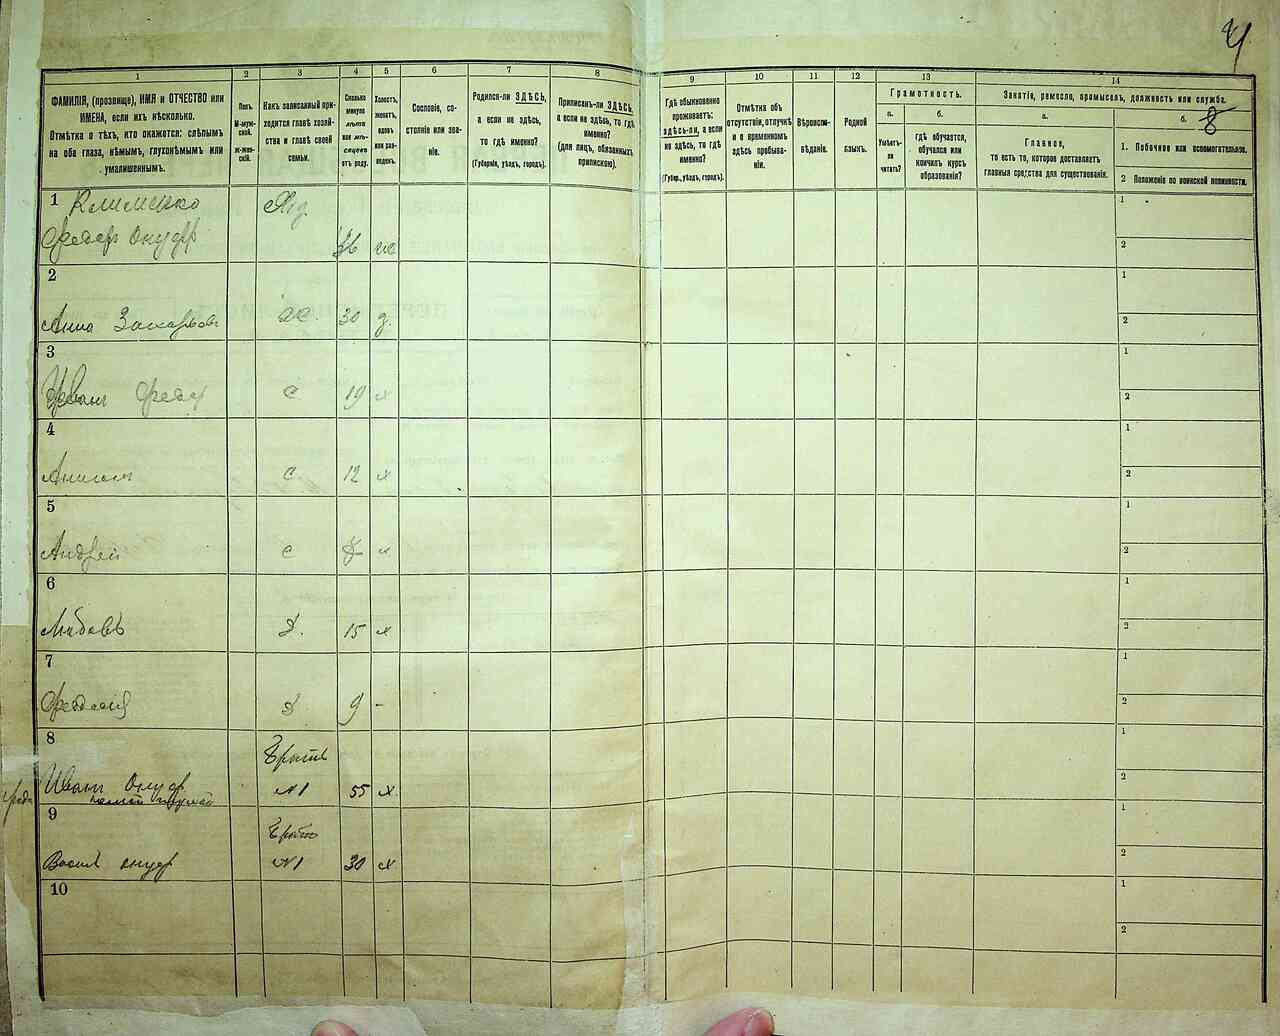 1
ФАМИЛІЯ, (прозвище), ИМЯ и ОТЧЕСТВО или
ИМЕНА, если ихъ нѣсколько.
Отмѣтка о тѣхъ, кто окажется: слѣпымъ
на оба глаза, нѣмымъ, глухонѣмымъ или
умалишеннымъ.
2
Полъ.
М-муж-
ской.
Ж-жен-
скій.
3
Какъ записанный при-
ходится главѣ хозяй-
ства и главѣ своей
семьи.
4
Сколько
минуло
лѣтъ
или мѣ-
сяцевъ
отъ роду.
5
Холостъ,
женатъ,
вдовъ
или раз-
веденъ.
6
Сословіе, со-
стояніе или зва-
ніе.
7
Родился-ли ЗДѢСЬ,
а если не здѣсь,
то гдѣ именно?
(Губернія, уѣздъ, городъ).
8
Приписанъ-ли ЗДѢСЬ,
а если не здѣсь, то гдѣ
именно?
(для лицъ, обязанныхъ
припиской).
9
Гдѣ обыкновенно
проживаетъ:
здѣсь-ли, а если
не здѣсь, то гдѣ
именно?
(Губерн., уѣздъ, городъ).
10
Отмѣтка объ
отсутствіи, отлучкѣ
и о временномъ
здѣсь пребыва-
ніи.
11
Вѣроиспо-
вѣданіе.
12
Родной
языкъ.
13
Грамотность.
а.
Умѣетъ-
ли
читать?
б.
Гдѣ обучается,
обучался или
кончилъ курсъ
образованія?
14
Занятіе, ремесло, промыселъ, должность или служба.
а.
Главное,
то есть то, которое доставляетъ
главныя средства для существованія.
б.
8
1. Побочное или вспомогательное.
2 Положеніе по воинской повинности.
1 Клименко
Федор Онуфр 36
1
2
2
Анна Захаров 30
1
2
3
Иван Федор с 19 х
1
2
4
с 12 х
1
2
5
Андрей с х
1
2
6
Любовь д. 15 х
1
2
7
д 9 -
1
2
8 Братъ
Иванъ Онуфр №1 55 х
1
2
9 Братъ
Васил Онуфр №1 30 х
1
2
10
1
2